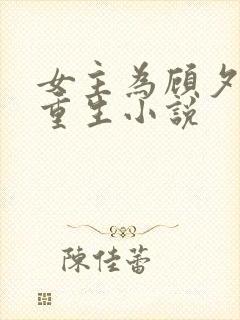 女主為顧夕
重生小說
陳佳蕾